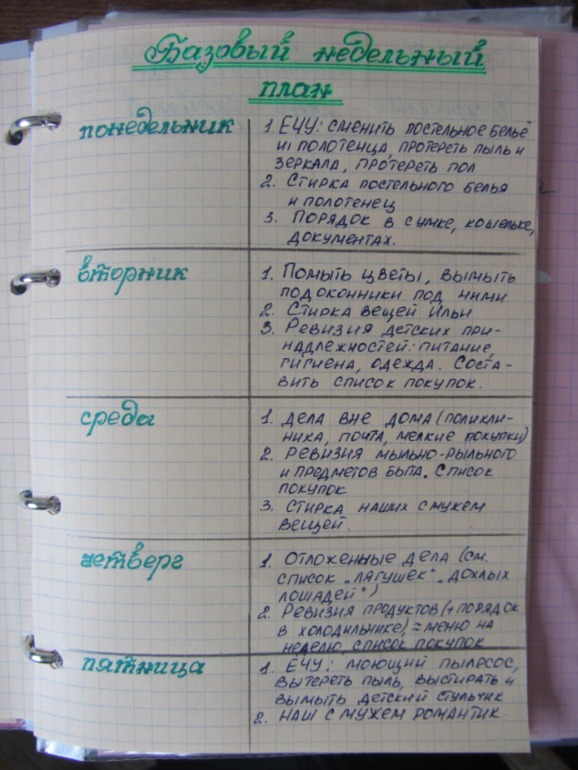 Базовый недельный
план
понедельник
1. ЕЧУ: сменить постельное бельё
и полотенца, протереть пыль и
зеркала, протереть пол
2. Стирка постельного белья
и полотенец
3. Порядок в сумке, кошельке,
документах.
вторник
1. Помыть цветы, вымыть
подоконники под ними
2. Стирка вещей Ильи
3. Ревизия детских при-
надлежностей: питание,
гигиена, одежда. Соста-
вить список покупок.
среда
1. Дела вне дома (поликли-
ника, почта, мелкие покупки)
2. Ревизия мыльно-рыльного
и предметов быта. Список
покупок
3. Стирка наших с мужем
вещей.
четверг
1. Отложенные дела (см.
список „лягушек", „дохлых
лошадей")
2. Ревизия продуктов (+порядок
в холодильнике), = меню на
неделю, список покупок
пятница
1. ЕЧУ: моющий пылесос,
вытереть пыль, выстирать и
вымыть детский стульчик
2. Наш с мужем романтик.